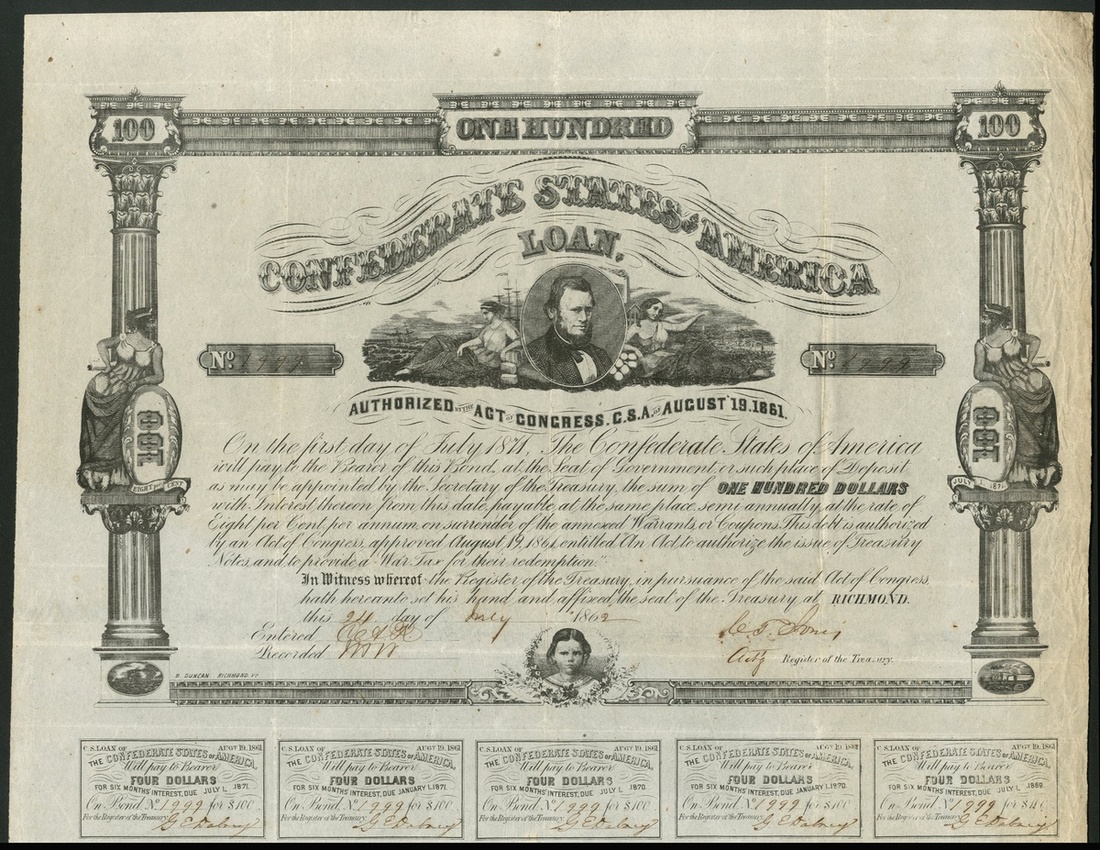 100
ONE HUNDRED
100
CONFEDERATE STATES OF AMERICA
LOAN,
No. 1999
No. 1999
AUTHORIZED BY THE ACT OF CONGRESS. C.S.A. OF AUGUST 19. 1861.
On the first day of July 1871, The Confederate States of America
will pay to the Bearer of this Bond, at the Seat of Government, or such place of Deposit
as may be appointed by the Secretary of the Treasury, the sum of ONE HUNDRED DOLLARS
with Interest thereon from this date, payable at the same place, semi-annually, at the rate of
Eight per Cent, per annum, on surrender of the annexed Warrants, or Coupons. This debt is authorized
by an Act of Congress, approved August 19, 1861, entitled "An Act, to authorize the issue of Treasury
Notes, and to provide a War Tax for their redemption."
In Witness whereof the Register of the Treasury, in pursuance of the said Act of Congress,
hath hereunto set his hand and affixed the seal of the Treasury, at RICHMOND.
this 24 day of July 1862
Entered
Recorded
Actg Register of the Treasury.
100
EIGHT PER CENT
100
JULY 1. 1871
B. DUNCAN. RICHMOND. VA
C.S. LOAN OF AUGT 19, 1861
THE CONFEDERATE STATES OF AMERICA,
Will pay to Bearer
FOUR DOLLARS
FOR SIX MONTHS' INTEREST, DUE JULY 1, 1871.
On Bond No. 1999 for $100
For the Register of the Treasury. G E Dabney
C.S. LOAN OF AUGT 19, 1861
THE CONFEDERATE STATES OF AMERICA,
Will pay to Bearer
FOUR DOLLARS
FOR SIX MONTHS' INTEREST, DUE JANUARY 1, 1871.
On Bond No. 1999 for $100
For the Register of the Treasury. G E Dabney
C.S. LOAN OF AUGT 19, 1861
THE CONFEDERATE STATES OF AMERICA,
Will pay to Bearer
FOUR DOLLARS
FOR SIX MONTHS' INTEREST, DUE JULY 1, 1870.
On Bond No. 1999 for $100
For the Register of the Treasury. G E Dabney
C.S. LOAN OF AUGT 19, 1861
THE CONFEDERATE STATES OF AMERICA,
Will pay to Bearer
FOUR DOLLARS
FOR SIX MONTHS' INTEREST, DUE JANUARY 1, 1870.
On Bond No. 1999 for $100
For the Register of the Treasury. G E Dabney
C.S. LOAN OF AUGT 19, 1861
THE CONFEDERATE STATES OF AMERICA,
Will pay to Bearer
FOUR DOLLARS
FOR SIX MONTHS' INTEREST, DUE JULY 1, 1869.
On Bond No. 1999 for
For the Register of the Treasury. G E Dabney